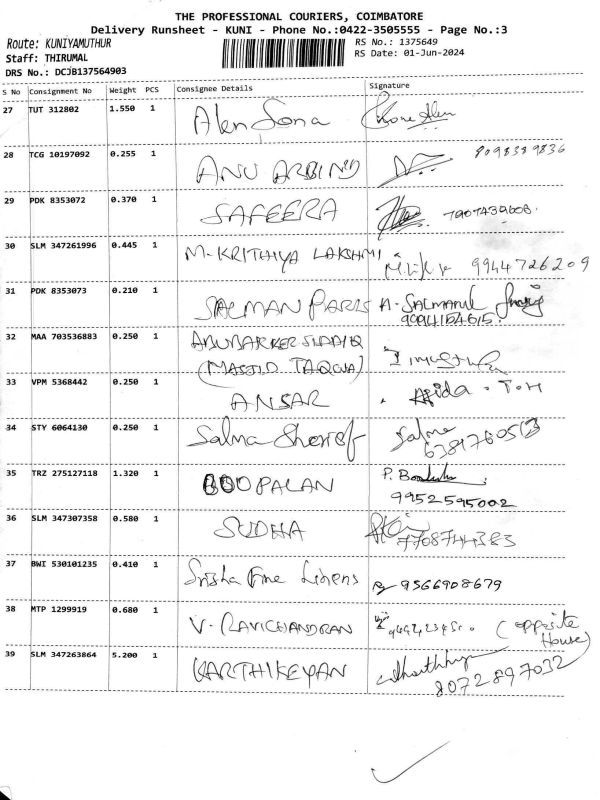 THE PROFESSIONAL COURIERS, COIMBATORE
Delivery Runsheet - KUNI - Phone No.:0422-3505555 - Page No.:3
Route: KUNIYAMUTHUR
RS No.: 1375649
Staff: THIRUMAL
RS Date: 01-Jun-2024
DRS No.: DCJB137564903
S No Consignment No Weight PCS Consignee Details Signature
27 TUT 312802 1.550 1 Alen Sona
28 TCG 10197092 0.255 1 ANU ARBIND 8098389836
29 PDK 8353072 0.370 1 SAFEERA 7907439608.
30 SLM 347261996 0.445 1 M. KRITHIYA LAKSHMI 9944726209
31 PDK 8353073 0.210 1 SALMAN PARIS A. SALMANUL
9994164615.
32 MAA 703536883 0.250 1 ABUBAKKER SIDDIQ
(MASJID TAQWA)
33 VPM 5368442 0.250 1 ANSAR
34 STY 6064130 0.250 1 Salma Sherief Salma
6381760513
35 TRZ 275127118 1.320 1 BOOPALAN P.
9952595002
36 SLM 347307358 0.580 1 SUDHA 7708744383
37 BWI 530101235 0.410 1 Srisha Fine Linens 9566908679
38 MTP 1299919 0.680 1 V. RAVICHANDRAN (opposite
House)
39 SLM 347263864 5.200 1 KARTHIKEYAN
8072897032